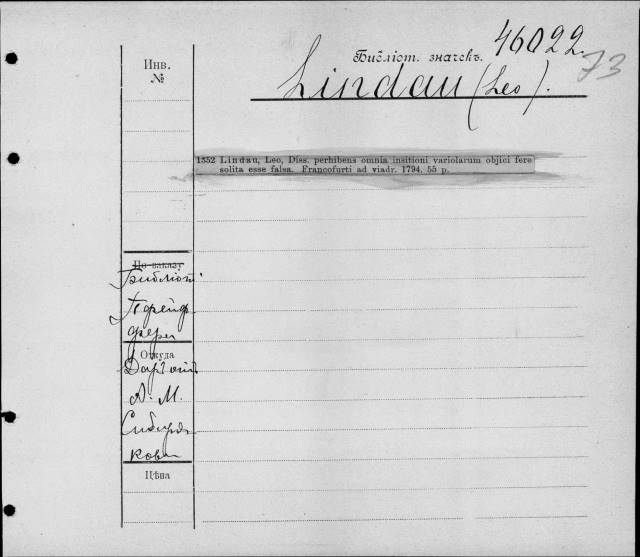 46022.
73
Библіот. значекъ.
Lindau (Leo).
Инв.
№
1352 Lindau, Leo, Diss. perhibens omnia insitioni variolarum objici fere
solita esse falsa. Francofurti ad viadr. 1794. 55 p.
По заказу
Библіот.
Пфейф-
фера
Откуда
Даръ отъ
А. М.
Сибиря-
кова
Цѣна